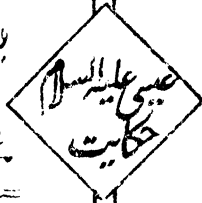 عیسی علیہ السلام
حکایت